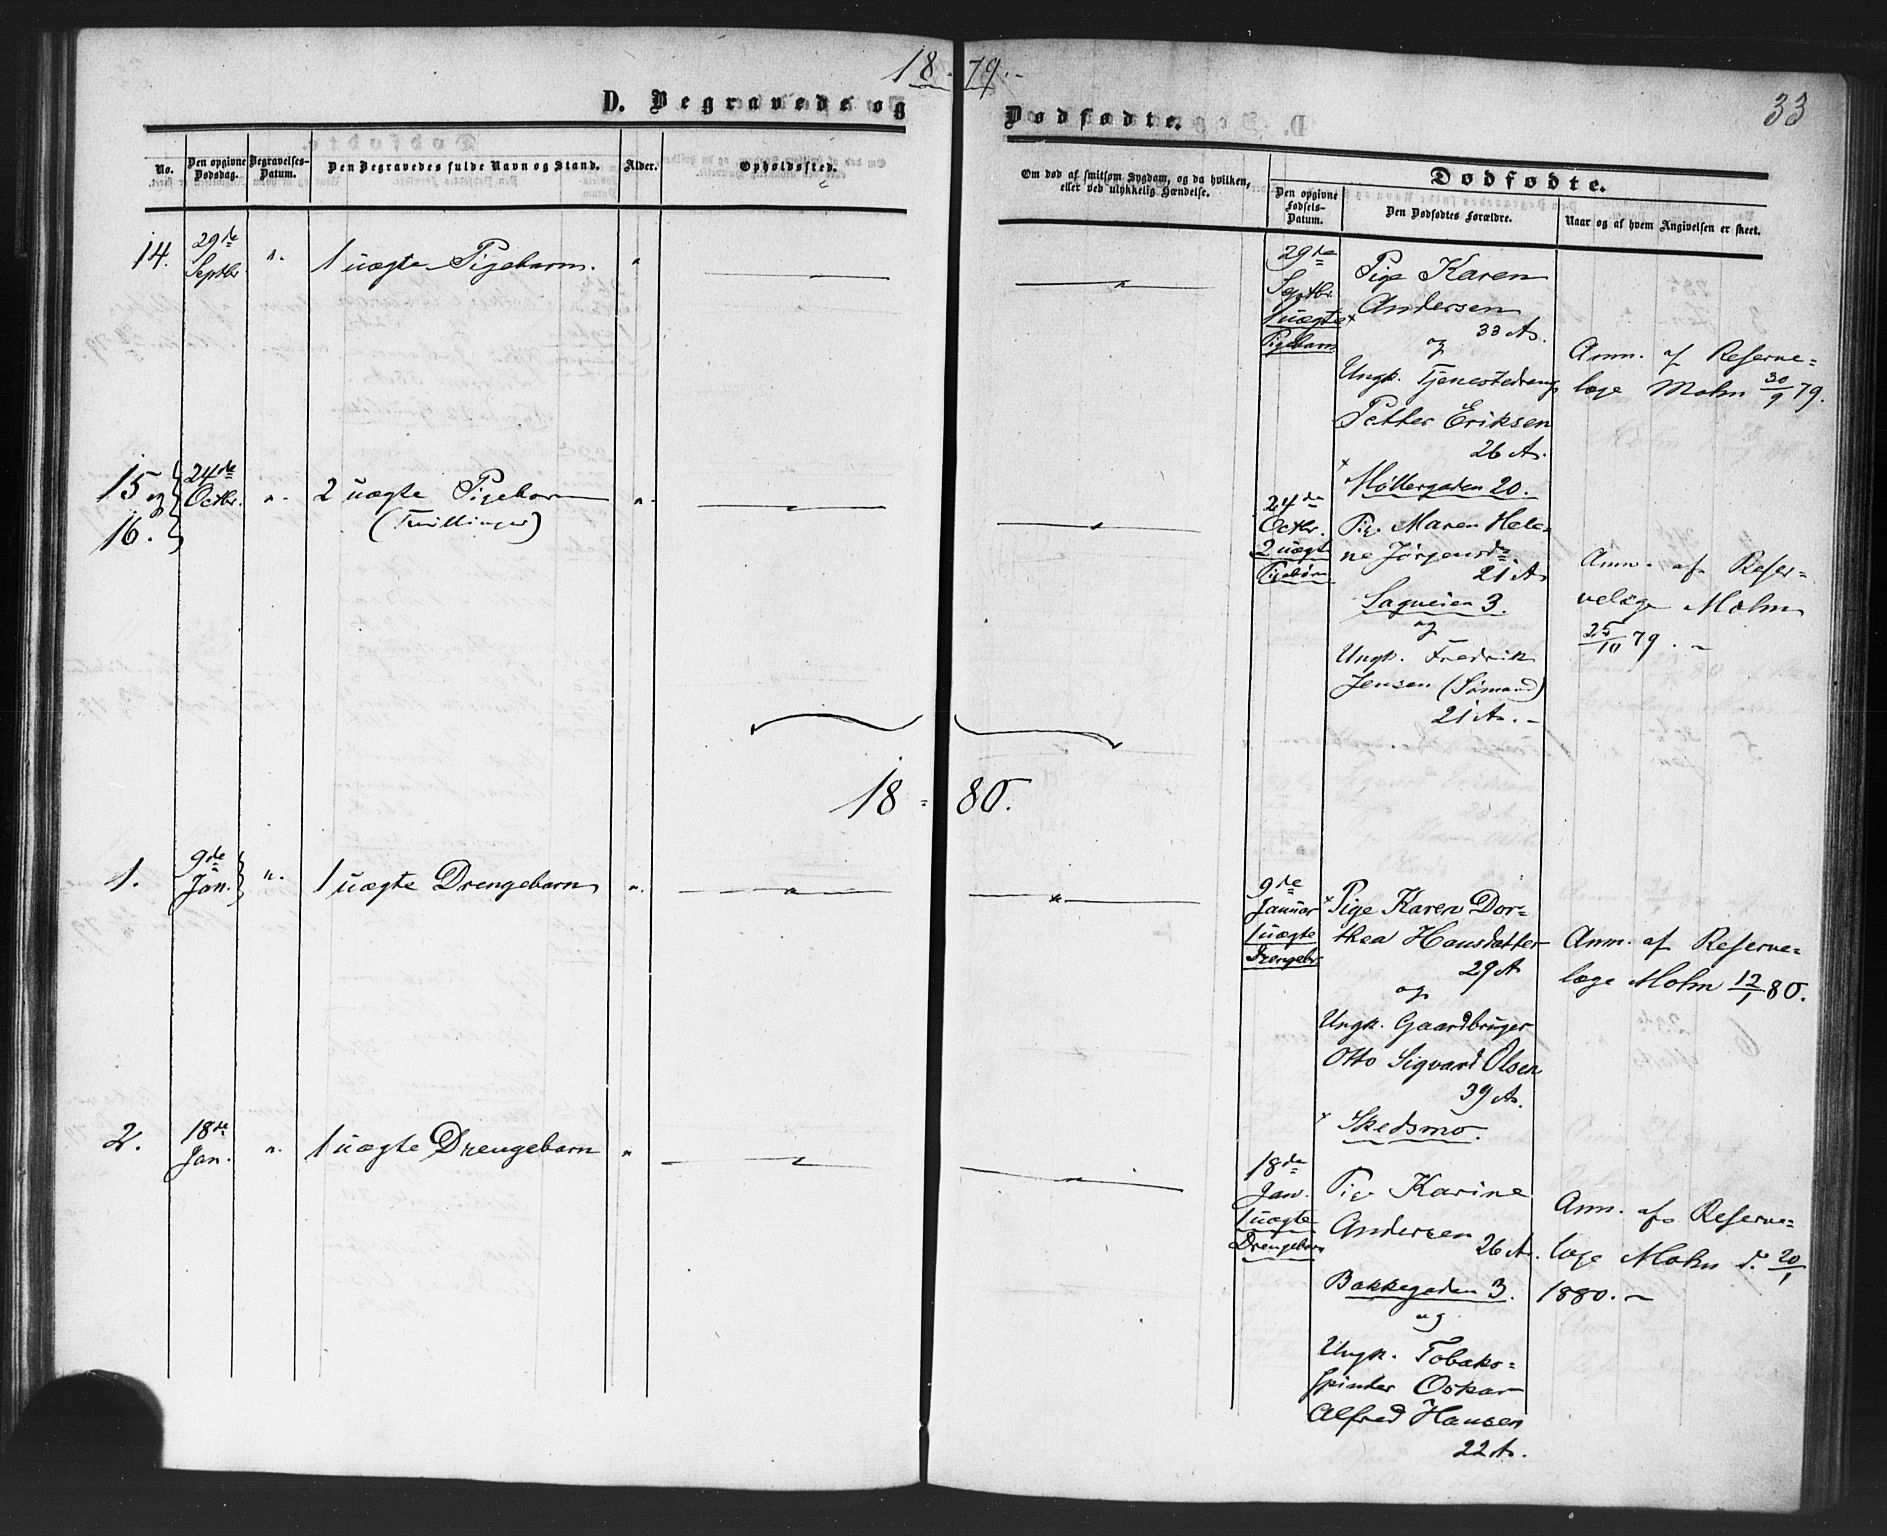 18-79.-
33
D. Begravede og Dødfødte.
No.
Den opgivne Dødsdag.
Begravelses-Datum.
Den Begravedes fulde Navn og Stand.
Alder.
Opholdssted.
Om død af smitsom Sygdom, og da hvilken, eller ved ulykkelig Hændelse.
Dødfødte.
Den opgivne Fødsels-Datum.
Den Dødfødtes Forældre.
Naar og af hvem Angivelsen er skeet.
14.
29de
Septbr
1 uægte Pigebarn.
29de
Septbr.
1 uægte
Pigebarn
Pige Karen
Andersen
33 A.
og
Ungk. Tjenestedreng
Petter Eriksen
26 A.
× Møllergaden 20.
Anm. af Reserve=
læge Mohn 30/9 79.
15 og
16.
24de
Octbr.
2 uægte Pigebørn
(Tvillinger)
24de
Octbr.
2 uægte
Pigebørn
Pig. Maren Hele=
ne Jørgensd.
21 A
Sagveien 3.
og
Ungk. Fredrik
Jensen (Sømand)
21 A. -
Anm. af Reser=
velæge Mohn
25/10 79. -
18 = 80.
1.
9de
Jan.
1 uægte Drengebarn
9de
Januar
1 uægte
Drengeb.
× Pige Karen Dor=
thea Hansdatter
29 A
og
Ungk. Gaardbruger
Otto Sigvard Olsen
39 A.
× Skedsmo.
Anm. af Reserve=
læge Mohn 12/1 80.
2.
18de
Jan.
1 uægte Drengebarn
18de
Jan.
1 uægte
Drengebarn
Pige Karine
Andersen
26 A.
Bakkegaden 3.
og
Ungk. Tobaks=
spinder Oskar
Alfred Hansen
22 A.
Anm. af Reserve=
læge Mohn d. 20/1
1880. -